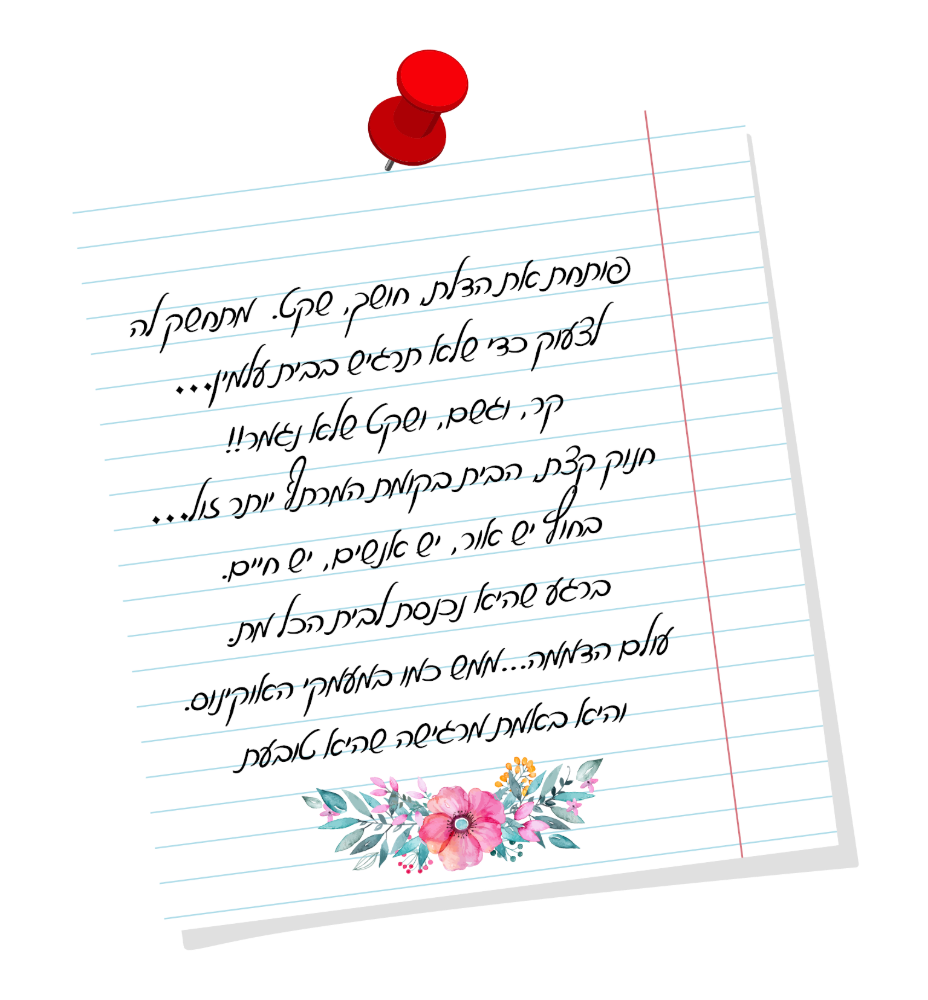 פותחת את הדלת, חושך, שקט. מתחשק לה
לצעוק כדי שלא תרגיש בבית עלמין...
קר, וגשם, ושקט שלא נגמר!!
חנוק קצת, הבית בקומת המרתף יותר זול...
בחוץ יש אור, יש אנשים, יש חיים.
ברגע שהיא נכנסת לבית הכל מת.
עולם הדממה...ממש כמו במעמקי האוקינוס.
והיא באמת מרגישה שהיא טובעת